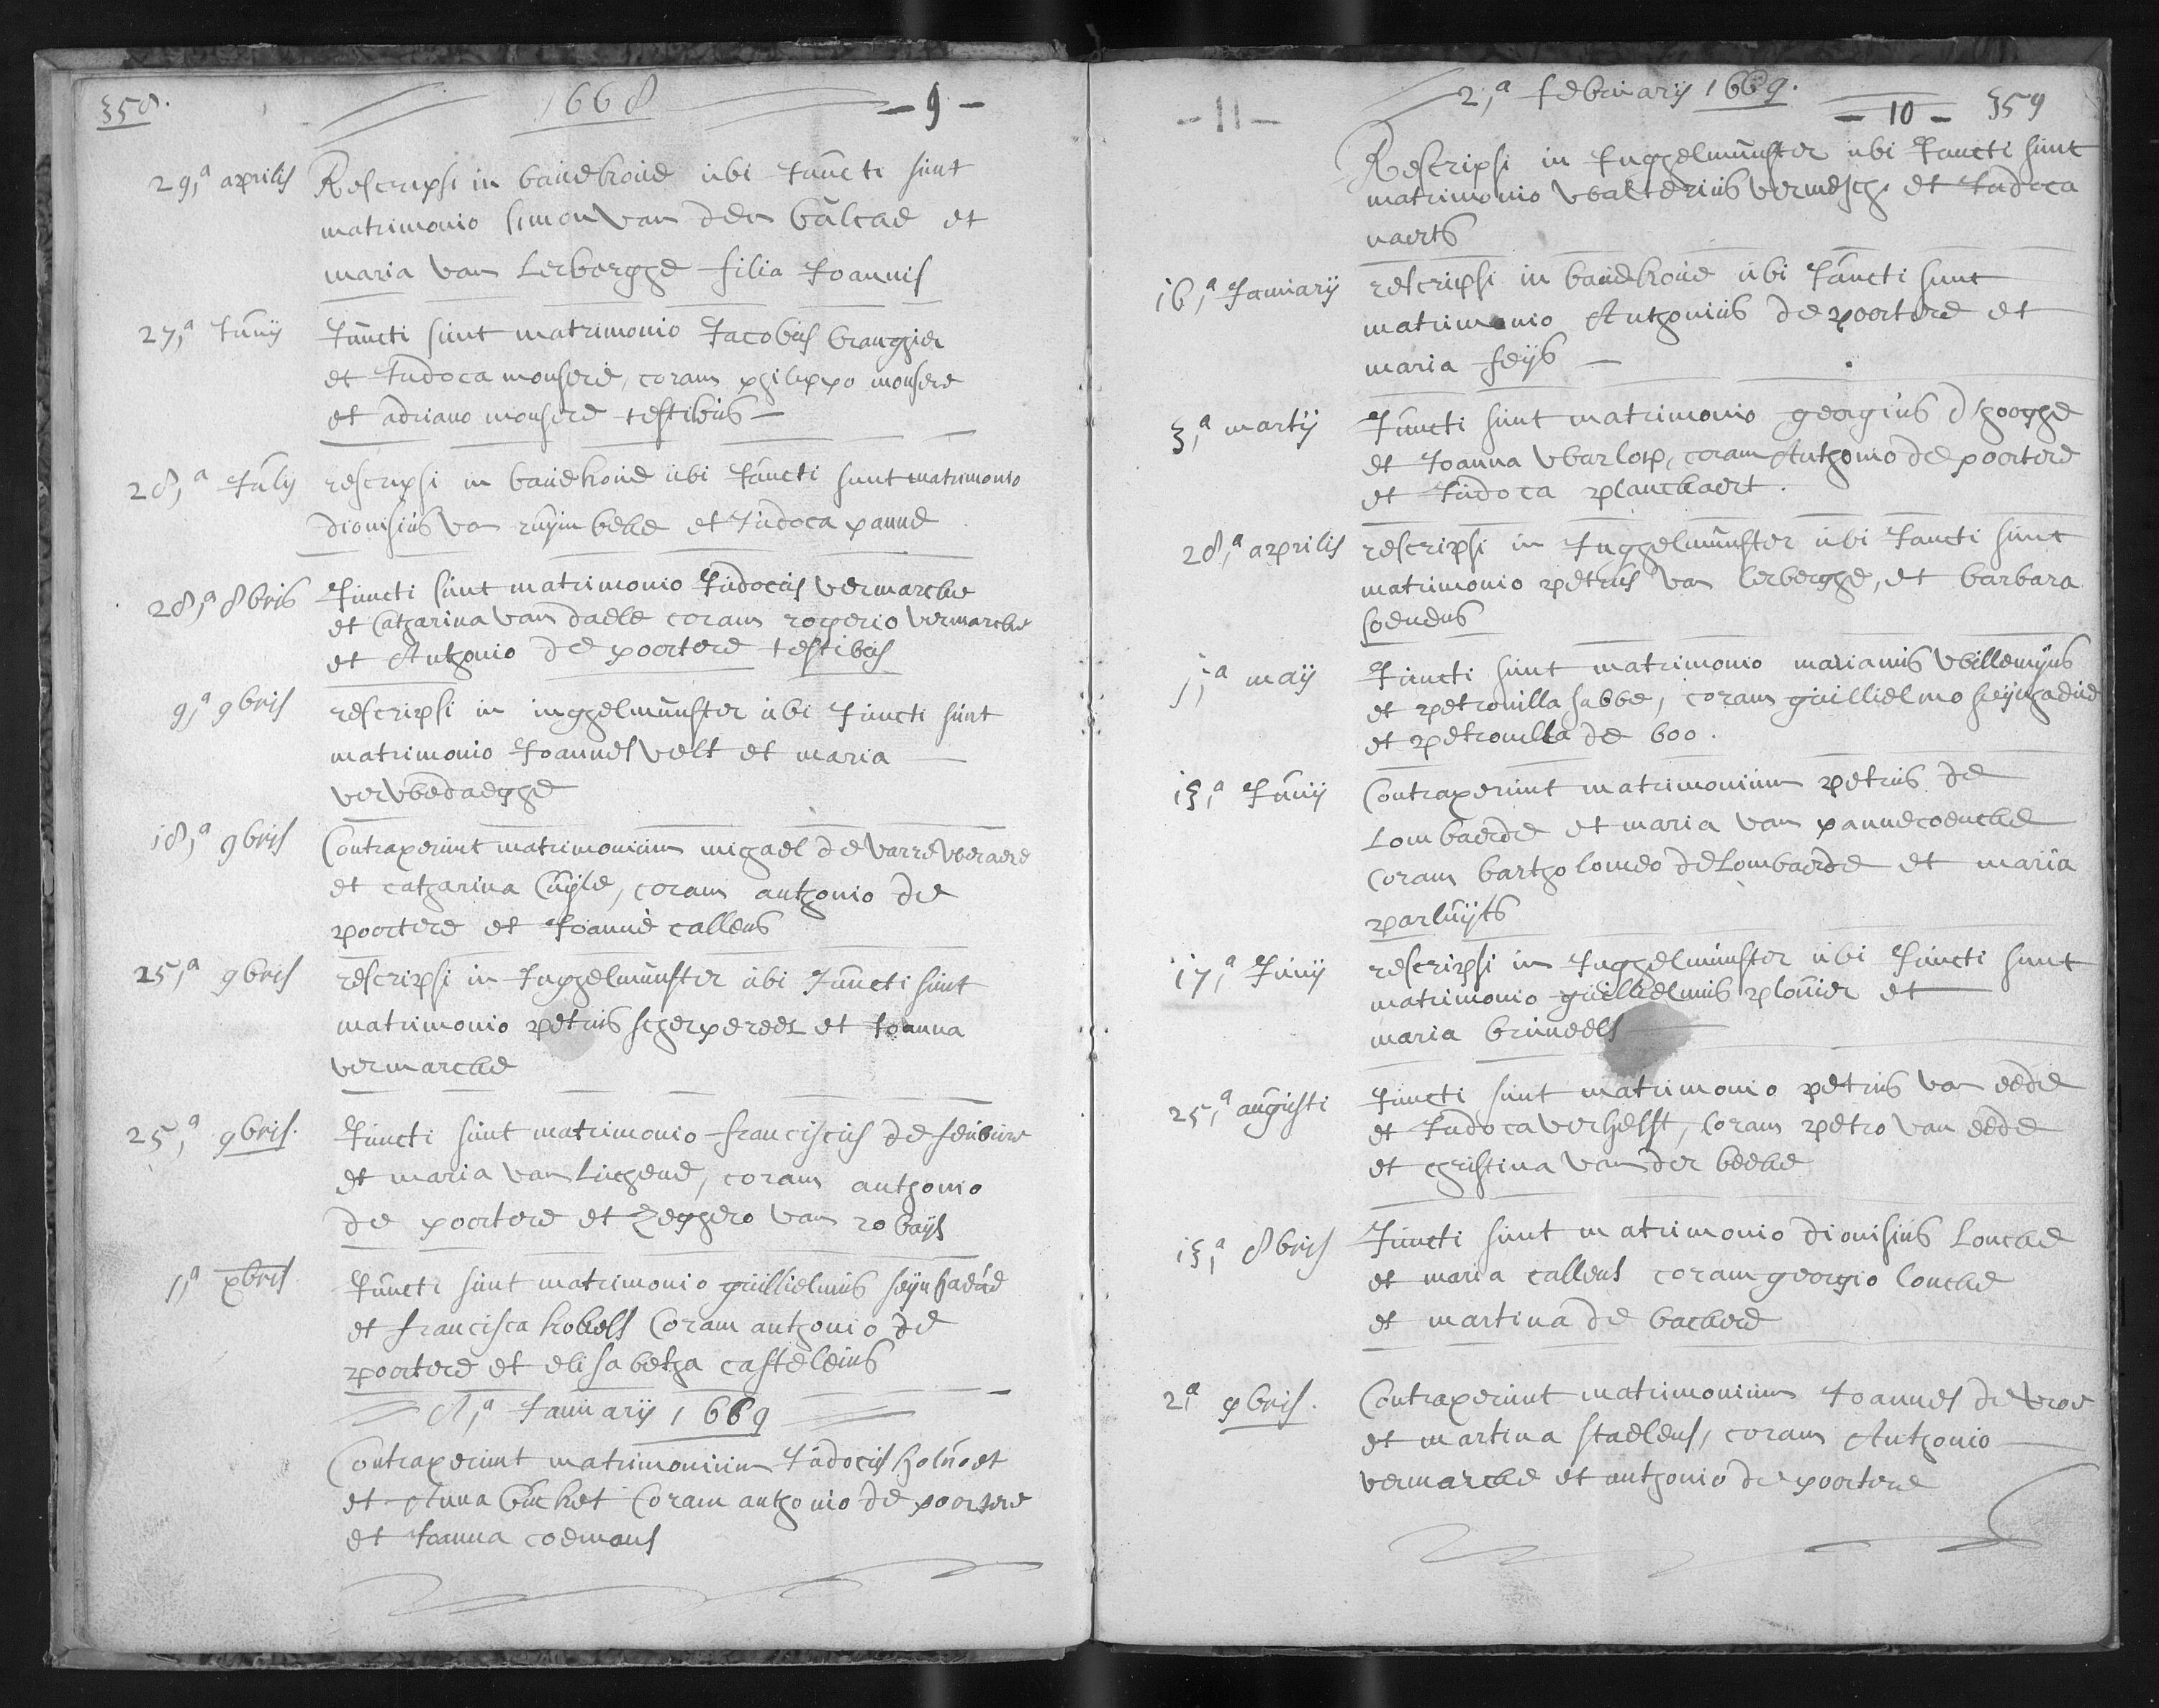 358.
1668
- 9 -
29,a aprilis Rescripsi in bauekoue ubi Juncti sunt
matrimonio simon van den bulcae et
maria van Lerbergge filia Joannis
27,a Junij Juncti sunt matrimonio Jacobus branggier
et Judoca monsere, coram pgilippo monsere
et adriano monsere testibus
28,a July rescripsi in bauekoue ubi Juncti sunt matrimonio
dionisius va ruym beke et Judoca panne
28,a 8bris Juncti sunt matrimonio Judocus vermarcke
et Catgarina van daele coram rogerio vermarcke
et Antgonio de poortere testibus
9,a 9bris rescripsi in inggelmunster ubi Juncti sunt
matrimonio Joannes velt et maria
vervbedaegge
18,a 9bris Contraxerunt matrimonium migael de varrevberaere
et catgarina Cuyle, coram antgonio de
poortere et Joanne callens
25,a 9bris rescripsi in Inggelmunster ubi Juncti sunt
matrimonio petrus scgerpereel et Joanna
vermarcke
25,a 9bris. Juncti sunt matrimonio franciscus de
et maria van Lucgene, coram antgonio
de poortere et Zeggero van robays
1,a xbris Juncti sunt matrimonio guillielmus seynhaeue
et francisca kokels Coram antgonio de
poortere et elisabetga casteleins
8,a Januarij 1669
Contraxerunt matrimonium Judocus holuoet
et Anna Cucket Coram antgonio de poortere
et Joanna coemans
- 11 -
2,a februarij 1669.
- 10 - 359
Rescripsi in Inggelmunster ubi Juncti sunt
matrimonio vbalterius vermescg. et Judoca
naerts
16,a Januarij rescripsi in bauekoue ubi Juncti sunt
matrimonio Antgonius de poortere et
maria feys
3,a martij Juncti sunt matrimonio georgius dgoogge
et Joanna vbarlop, coram Antgonio de poortere
et Judoca planckaert.
28,a aprilis rescripsi in Inggelmunster ubi Juncti sunt
matrimonio petrus va lerbergge, et barbara
soenens
1,a maij Juncti sunt matrimonio marianus vbillemyns
et petronilla sabbe, coram guillielmo seyngaeue
et petronella de boo.
13,a Junij Contraxerunt matrimonium petrus de
Lombaerde et maria van pannecoucke
coram bartgolomeo de Lombaerde et maria
parluyts
17,a Junij rescripsi in Inggelmunster ubi Juncti sunt
matrimonio guillielmus plouier et
maria bruneels
25,a augusti Juncti sunt matrimonio petrus va eede
et Judoca verhelst, Coram petro van eede
et cgristina van der beeke
13,a 8bris Juncti sunt matrimonio dionisius Loncke
et maria callens coram georgio loncke
et martina de backere
2,a 9bris. Contraxerunt matrimonium Joannes de vroe
et martina staelens, coram Antgonio
vermarcke et antgonio de poortere